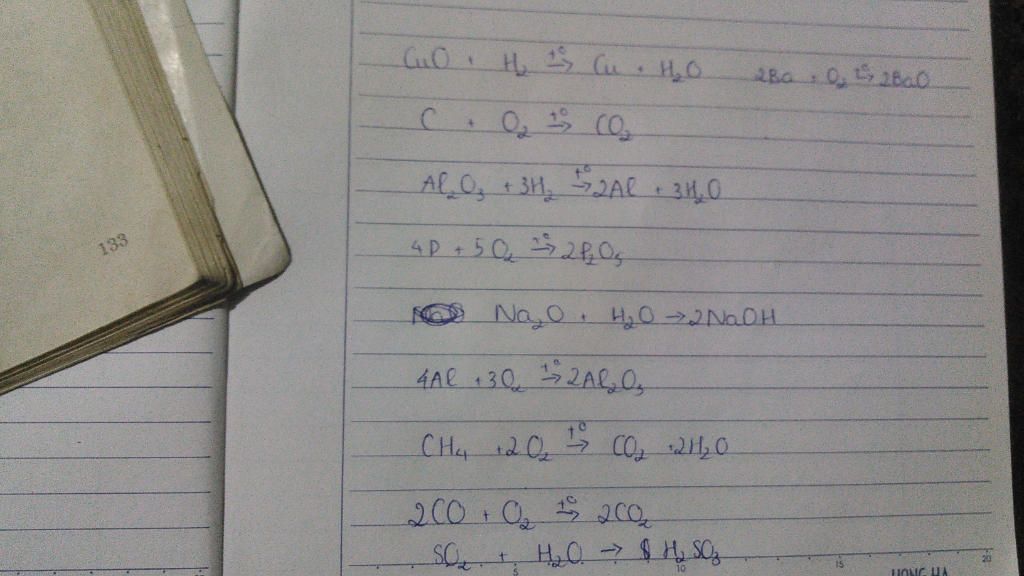 CuO + H₂ →t° Cu + H₂O 2Ba + O₂ →t° 2BaO
C + O₂ →t° CO₂
Al₂O₃ + 3H₂ →t° 2Al + 3H₂O
133
4P + 5O₂ →t° 2P₂O₅
Na₂O + H₂O → 2NaOH
4Al + 3O₂ →t° 2Al₂O₃
CH₄ + 2O₂ →t° CO₂ + 2H₂O
2CO + O₂ →t° 2CO₂
SO₂ + H₂O → H₂SO₃
5 10 15 20
HONG HA